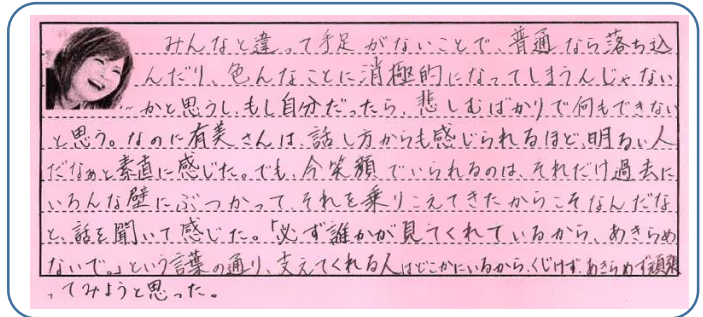 みんなと違って手足がないことで、普通なら落ち込
んだり、色んなことに消極的になってしまうんじゃない
かと思うし、もし自分だったら、悲しむばかりで何もできない
と思う。なのに有美さんは、話し方からも感じられるほど、明るい人
だなぁと素直に感じた。でも、今笑顔でいられるのは、それだけ過去に
いろんな壁にぶつかって、それを乗りこえてきたからこそなんだな
と、話を聞いて感じた。「必ず誰かが見てくれているから、あきらめ
ないで。」という言葉の通り、支えてくれる人はどこかにいるから、くじけず、あきらめず頑張
ってみようと思った。